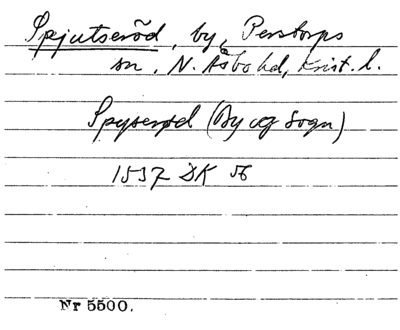 Spjutseröd, by, Perstorps
sn, N. Åsbo hd, Krist. l.
Spyserød (By og Sogn)
1537 DK 56
Nr 5500.